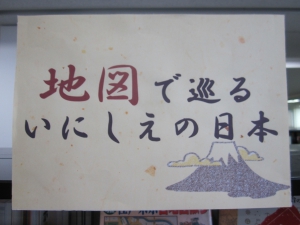 地図で巡る
いにしえの日本